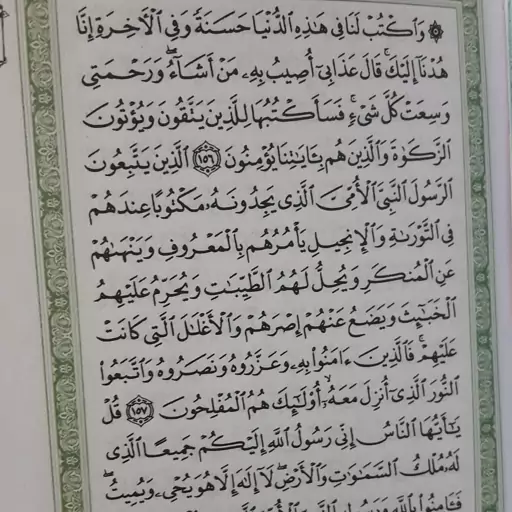 ۞ وَٱكْتُبْ لَنَا فِى هَٰذِهِ ٱلدُّنْيَا حَسَنَةً وَفِى ٱلْءَاخِرَةِ إِنَّا
هُدْنَآ إِلَيْكَ ۚ قَالَ عَذَابِىٓ أُصِيبُ بِهِۦ مَنْ أَشَآءُ ۖ وَرَحْمَتِى
وَسِعَتْ كُلَّ شَىْءٍ ۚ فَسَأَكْتُبُهَا لِلَّذِينَ يَتَّقُونَ وَيُؤْتُونَ
ٱلزَّكَوٰةَ وَٱلَّذِينَ هُم بِـَٔايَٰتِنَا يُؤْمِنُونَ ﴿١٥٦﴾ ٱلَّذِينَ يَتَّبِعُونَ
ٱلرَّسُولَ ٱلنَّبِىَّ ٱلْأُمِّىَّ ٱلَّذِى يَجِدُونَهُۥ مَكْتُوبًا عِندَهُمْ
فِى ٱلتَّوْرَىٰةِ وَٱلْإِنجِيلِ يَأْمُرُهُم بِٱلْمَعْرُوفِ وَيَنْهَىٰهُمْ
عَنِ ٱلْمُنكَرِ وَيُحِلُّ لَهُمُ ٱلطَّيِّبَٰتِ وَيُحَرِّمُ عَلَيْهِمُ
ٱلْخَبَٰٓئِثَ وَيَضَعُ عَنْهُمْ إِصْرَهُمْ وَٱلْأَغْلَٰلَ ٱلَّتِى كَانَتْ
عَلَيْهِمْ ۚ فَٱلَّذِينَ ءَامَنُوا۟ بِهِۦ وَعَزَّرُوهُ وَنَصَرُوهُ وَٱتَّبَعُوا۟
ٱلنُّورَ ٱلَّذِىٓ أُنزِلَ مَعَهُۥٓ ۙ أُو۟لَٰٓئِكَ هُمُ ٱلْمُفْلِحُونَ ﴿١٥٧﴾ قُلْ
يَٰٓأَيُّهَا ٱلنَّاسُ إِنِّى رَسُولُ ٱللَّهِ إِلَيْكُمْ جَمِيعًا ٱلَّذِى
لَهُۥ مُلْكُ ٱلسَّمَٰوَٰتِ وَٱلْأَرْضِ ۖ لَآ إِلَٰهَ إِلَّا هُوَ يُحْىِۦ وَيُمِيتُ ۖ
فَـَٔامِنُوا۟ بِٱللَّهِ